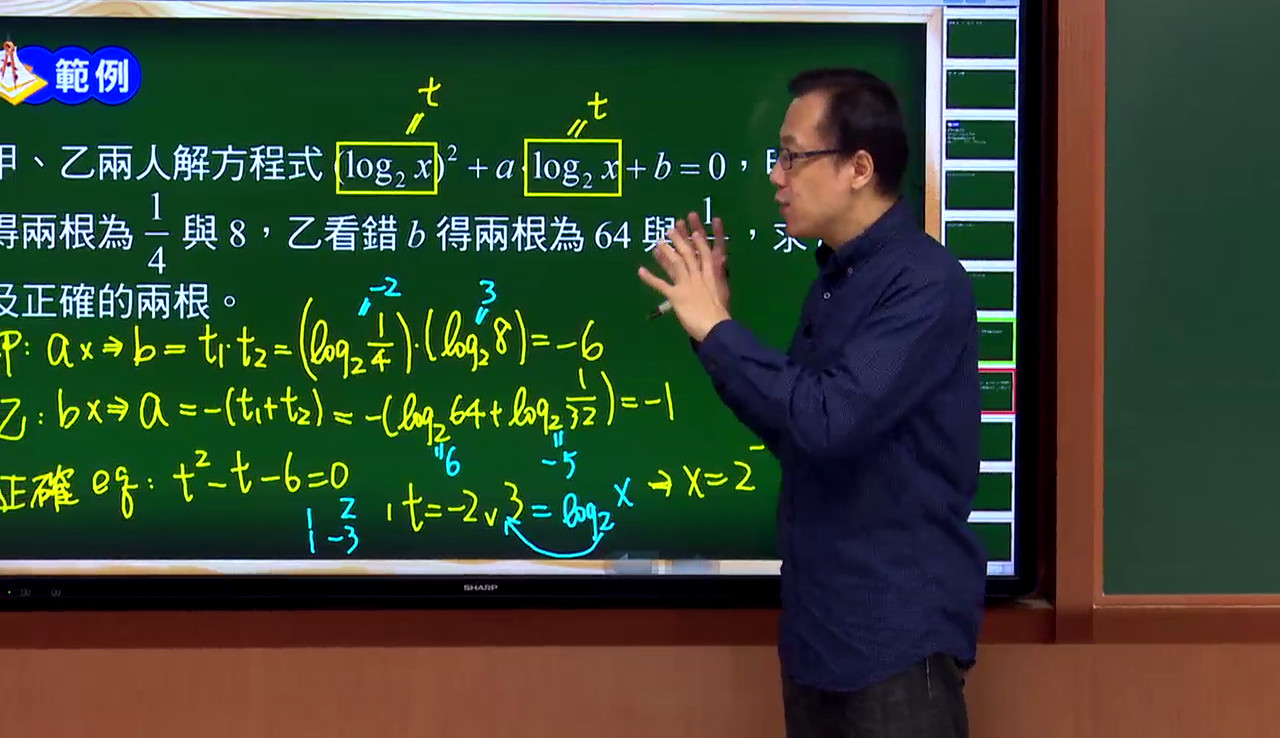 範例
t t
甲、乙兩人解方程式 (log₂ x)² + a log₂ x + b = 0，
得兩根為 1/4 與 8，乙看錯 b 得兩根為 64 與 1 ，求
及正確的兩根。
-2 3
甲: a x ⇒ b = t₁·t₂ = (log₂ 1/4)·(log₂ 8) = -6
乙: b x ⇒ a = -(t₁+t₂) = -(log₂ 64 + log₂ 1/32) = -1
6 -5
正確 eq: t² - t - 6 = 0
1 2
1 -3
, t = -2 ∨ 3 = log₂ x ⇒ x = 2⁻
SHARP